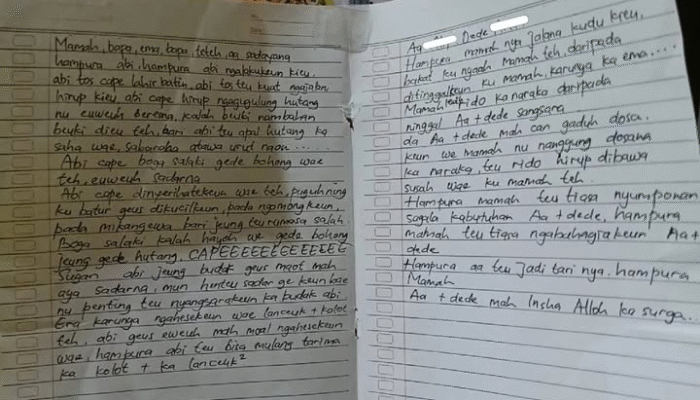 Mamah, bapa, ema, bapa, teteh, aa sadayana
hampura abi, hampura abi ngalakukeun kieu.
abi tos cape lahir batin, abi tos teu kuat ngajalanan
hirup kieu, abi cape hirup ngagugulung hutang
nu euweuh berena, kalah beuki nambahan
beuki dieu teh, bari abi teu apal hutang ka
saha wae, sabaraha atawa urut naon ....
Abi cape boga salaki gede bohong wae
teh, euweuh sadarna
Abi cape dinyerihatekeun wae teh, puguh ning
ku batur geus dikucilkeun, pada ngomongkeun
pada mikangewa bari jeung teu rumasa salah.
Boga salaki kalah hayoh we gede bohong
jeung gede hutang, CAPEEEEEEEEEEEEE
Sugan abi jeung budak geus maot mah
aya sadarna, mun henteu sadar ge keun bae
nu penting teu nyangsarakeun ka budak abi
Era karunya ngahesekeun wae lanceuk + kolot
teh, abi geus euweuh mah moal ngahesekeun
wae, hampura abi teu bisa mulang tarima
ka kolot + ka lanceuk²
Aa Dede
Hampura mamah nya jalana kudu kieu,
bakat ku nyaah mamah teh, daripada
ditinggalkeun ku mamah, karunya ka ema....
Mamah rido ka naraka daripada
ninggal Aa + dede sangsara
da Aa + dede mah can gaduh dosa.
keun we mamah nu nanggung dosana
ka naraka, teu rido hirup dibawa
susah wae ku mamah teh.
Hampura mamah teu tiasa nyumponan
sagala kabutuhan Aa + dede, hampura
mamah teu tiasa ngabahagiakeun Aa +
dede
Hampura aa teu jadi tari nya, hampura
Mamah
Aa + dede mah Insha Alloh ka surga...